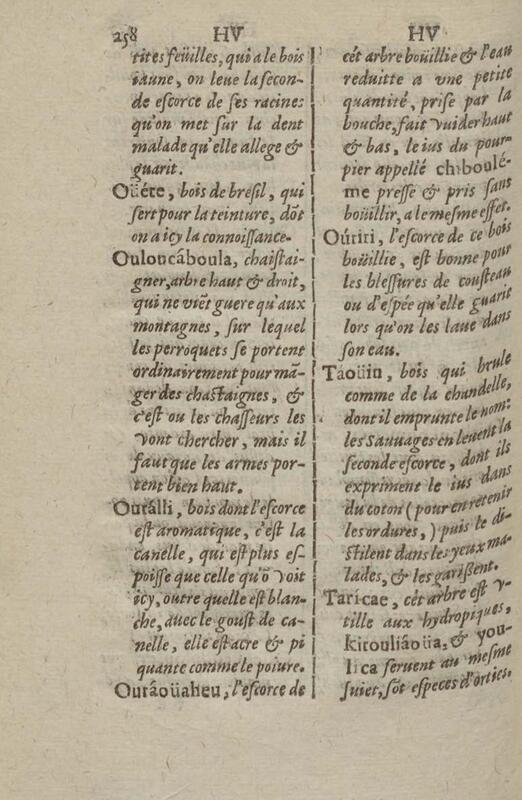 258 HV HV
tites feüilles, qui a le bois
iaune, on leue la secon-
de escorce de ses racines
qu'on met sur la dent
malade qu'elle allege &
guarit.
Oüére, bois de bresil, qui
sert pour la teinture, dōt
on a icy la connoissance.
Ouloucâboula, chaistai-
gner, arbre haut & droit,
qui ne viēt guere qu'aux
montagnes, sur lequel
les perroquets se portent
ordinairement pour mā-
ger des chastaignes, &
c'est ou les chasseurs les
vont chercher, mais il
faut que les armes por-
tent bien haut.
Ourálli, bois dont l'escorce
est aromatique, c'est la
canelle, qui est plus es-
poisse que celle qu'ō voit
icy, outre quelle est blan-
che, avec le goust de ca-
nelle, elle est acre & pi
quante comme le poiure.
Ourâoüaheu, l'escorce de
cét arbre boüillie & l'eau
reduitte a vne petite
quantité, prise par la
bouche, fait vuider haut
& bas, le ius du pour-
pier appellé chiboulé-
me presse & pris sans
boüillir, a le mesme effet.
Oúriri, l'escorce de ce bois
boüillie, est bonne pour
les blessures de cousteau
ou d'espée qu'elle guarit
lors qu'on les laue dans
son eau.
Táoüin, bois qui brule
comme de la chandelle,
dont il emprunte le nom:
les Sauuages en leuent la
seconde escorce, dont ils
expriment le ius dans
du coton (pour en retenir
les ordures,) puis le di-
stilent dans les yeux ma-
lades, & les garißent.
Tarícae, cét arbre est v-
tille aux hydropiques,
kirouliáoüa, & you-
lica seruent au mesme
suiet, sōt especes d'orties.